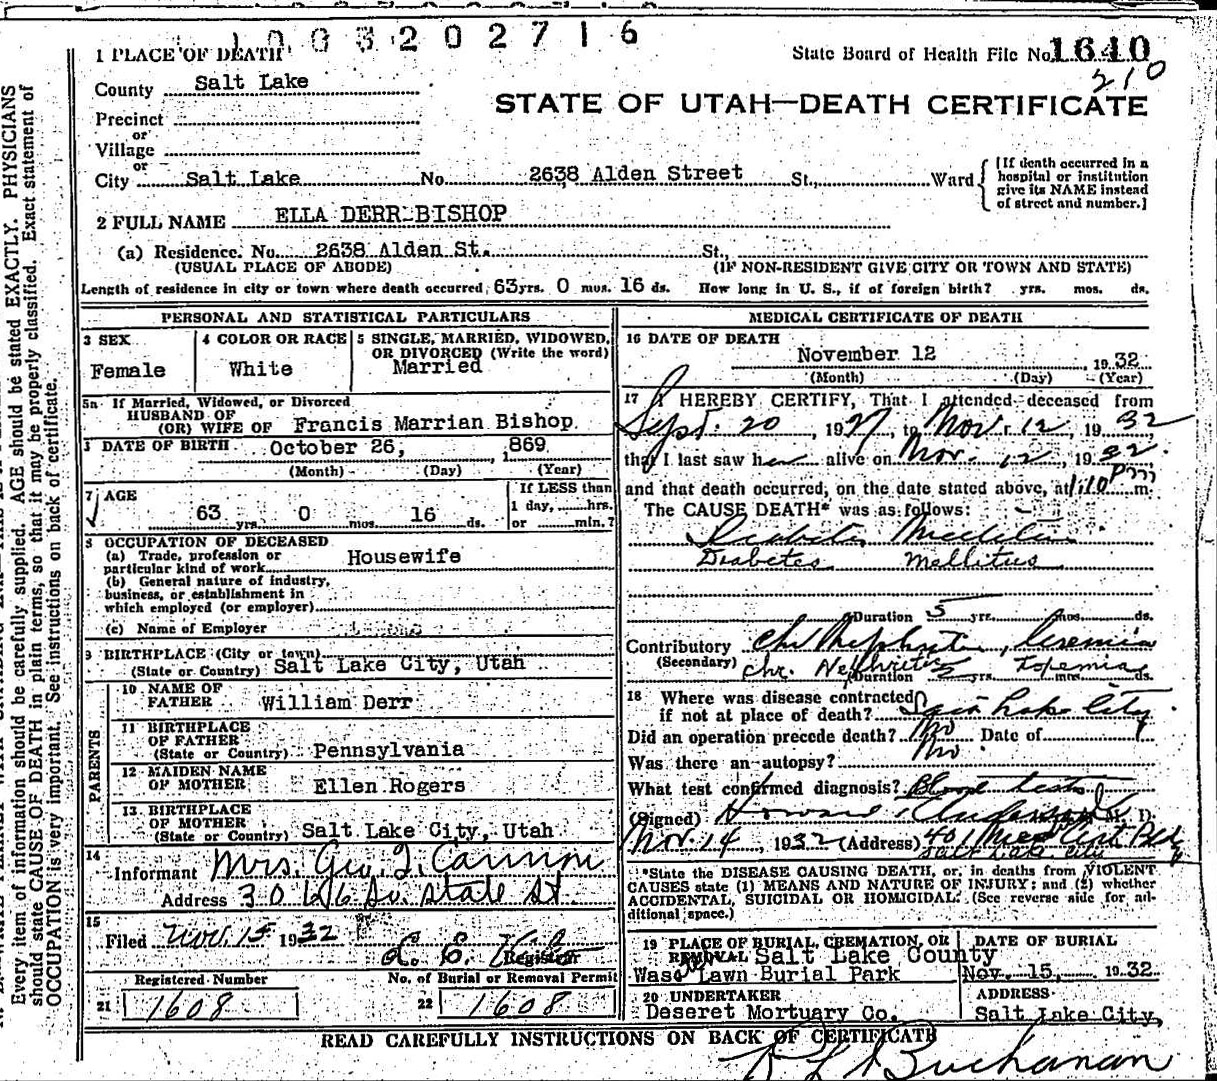 1003202716
1 PLACE OF DEATH
State Board of Health File No. 1640
210
County Salt Lake
STATE OF UTAH—DEATH CERTIFICATE
Precinct
or
Village
or
City Salt Lake No. 2638 Alden Street St., Ward
[If death occurred in a
hospital or institution
give its NAME instead
of street and number.]
2 FULL NAME ELLA DERR BISHOP
(a) Residence. No. 2638 Alden St. St.,
(USUAL PLACE OF ABODE) (IF NON-RESIDENT GIVE CITY OR TOWN AND STATE)
Length of residence in city or town where death occurred, 63 yrs. 0 mos. 16 ds. How long in U. S., if of foreign birth? yrs. mos. ds.
PERSONAL AND STATISTICAL PARTICULARS
3 SEX
Female
4 COLOR OR RACE
White
5 SINGLE, MARRIED, WIDOWED,
OR DIVORCED (Write the word)
Married
5a If Married, Widowed, or Divorced
HUSBAND OF
(OR) WIFE OF Francis Marrian Bishop
DATE OF BIRTH October 26, 869
(Month) (Day) (Year)
7 AGE
63 yrs. 0 mos. 16 ds.
If LESS than
1 day, hrs.
or min.?
8 OCCUPATION OF DECEASED
(a) Trade, profession or
particular kind of work Housewife
(b) General nature of industry,
business, or establishment in
which employed (or employer)
(c) Name of Employer
9 BIRTHPLACE (City or town)
(State or Country) Salt Lake City, Utah
PARENTS
10 NAME OF
FATHER William Derr
11 BIRTHPLACE
OF FATHER
(State or Country) Pennsylvania
12 MAIDEN NAME
OF MOTHER Ellen Rogers
13 BIRTHPLACE
OF MOTHER
(State or Country) Salt Lake City, Utah
14
Informant Mrs. Geo. J. Cannon
Address So. State St.
15
Filed Nov. 15 1932
Registrar
Registered Number
21 1608
No. of Burial or Removal Permit
22 1608
MEDICAL CERTIFICATE OF DEATH
16 DATE OF DEATH
November 12 1932
(Month) (Day) (Year)
17 I HEREBY CERTIFY, That I attended deceased from
Sept. 20, 1927, to Nov. 12, 1932
that I last saw her alive on Nov. 12, 1932.
and that death occurred, on the date stated above, at 1:10 Pm m.
The CAUSE DEATH* was as follows:
Diabetes Mellitus
Diabetes Mellitus
Duration 5 yrs. mos. ds.
Contributory Chr Nephritis, Uremia
(Secondary) Chr. Nephritis
Duration 2 yrs. mos. ds.
18 Where was disease contracted
if not at place of death? Salt Lake City
Did an operation precede death? No Date of
Was there an autopsy? No
What test confirmed diagnosis? Blood tests
(Signed) Howard Anderson M. D.
Nov. 14, 1932 (Address) 401 Med Art Bldg
Salt Lake City
*State the DISEASE CAUSING DEATH, or, in deaths from VIOLENT
CAUSES state (1) MEANS AND NATURE OF INJURY; and (2) whether
ACCIDENTAL, SUICIDAL OR HOMICIDAL. (See reverse side for ad-
ditional space.)
19 PLACE OF BURIAL, CREMATION, OR
REMOVAL Salt Lake County
Wasatch Lawn Burial Park
DATE OF BURIAL
Nov. 15, 1932
20 UNDERTAKER
Deseret Mortuary Co.
ADDRESS
Salt Lake City,
READ CAREFULLY INSTRUCTIONS ON BACK OF CERTIFICATE
Buchanan
Every item of information should be carefully supplied. AGE should be stated EXACTLY. PHYSICIANS
should state CAUSE OF DEATH in plain terms, so that it may be properly classified. Exact statement of
OCCUPATION is very important. See instructions on back of certificate.